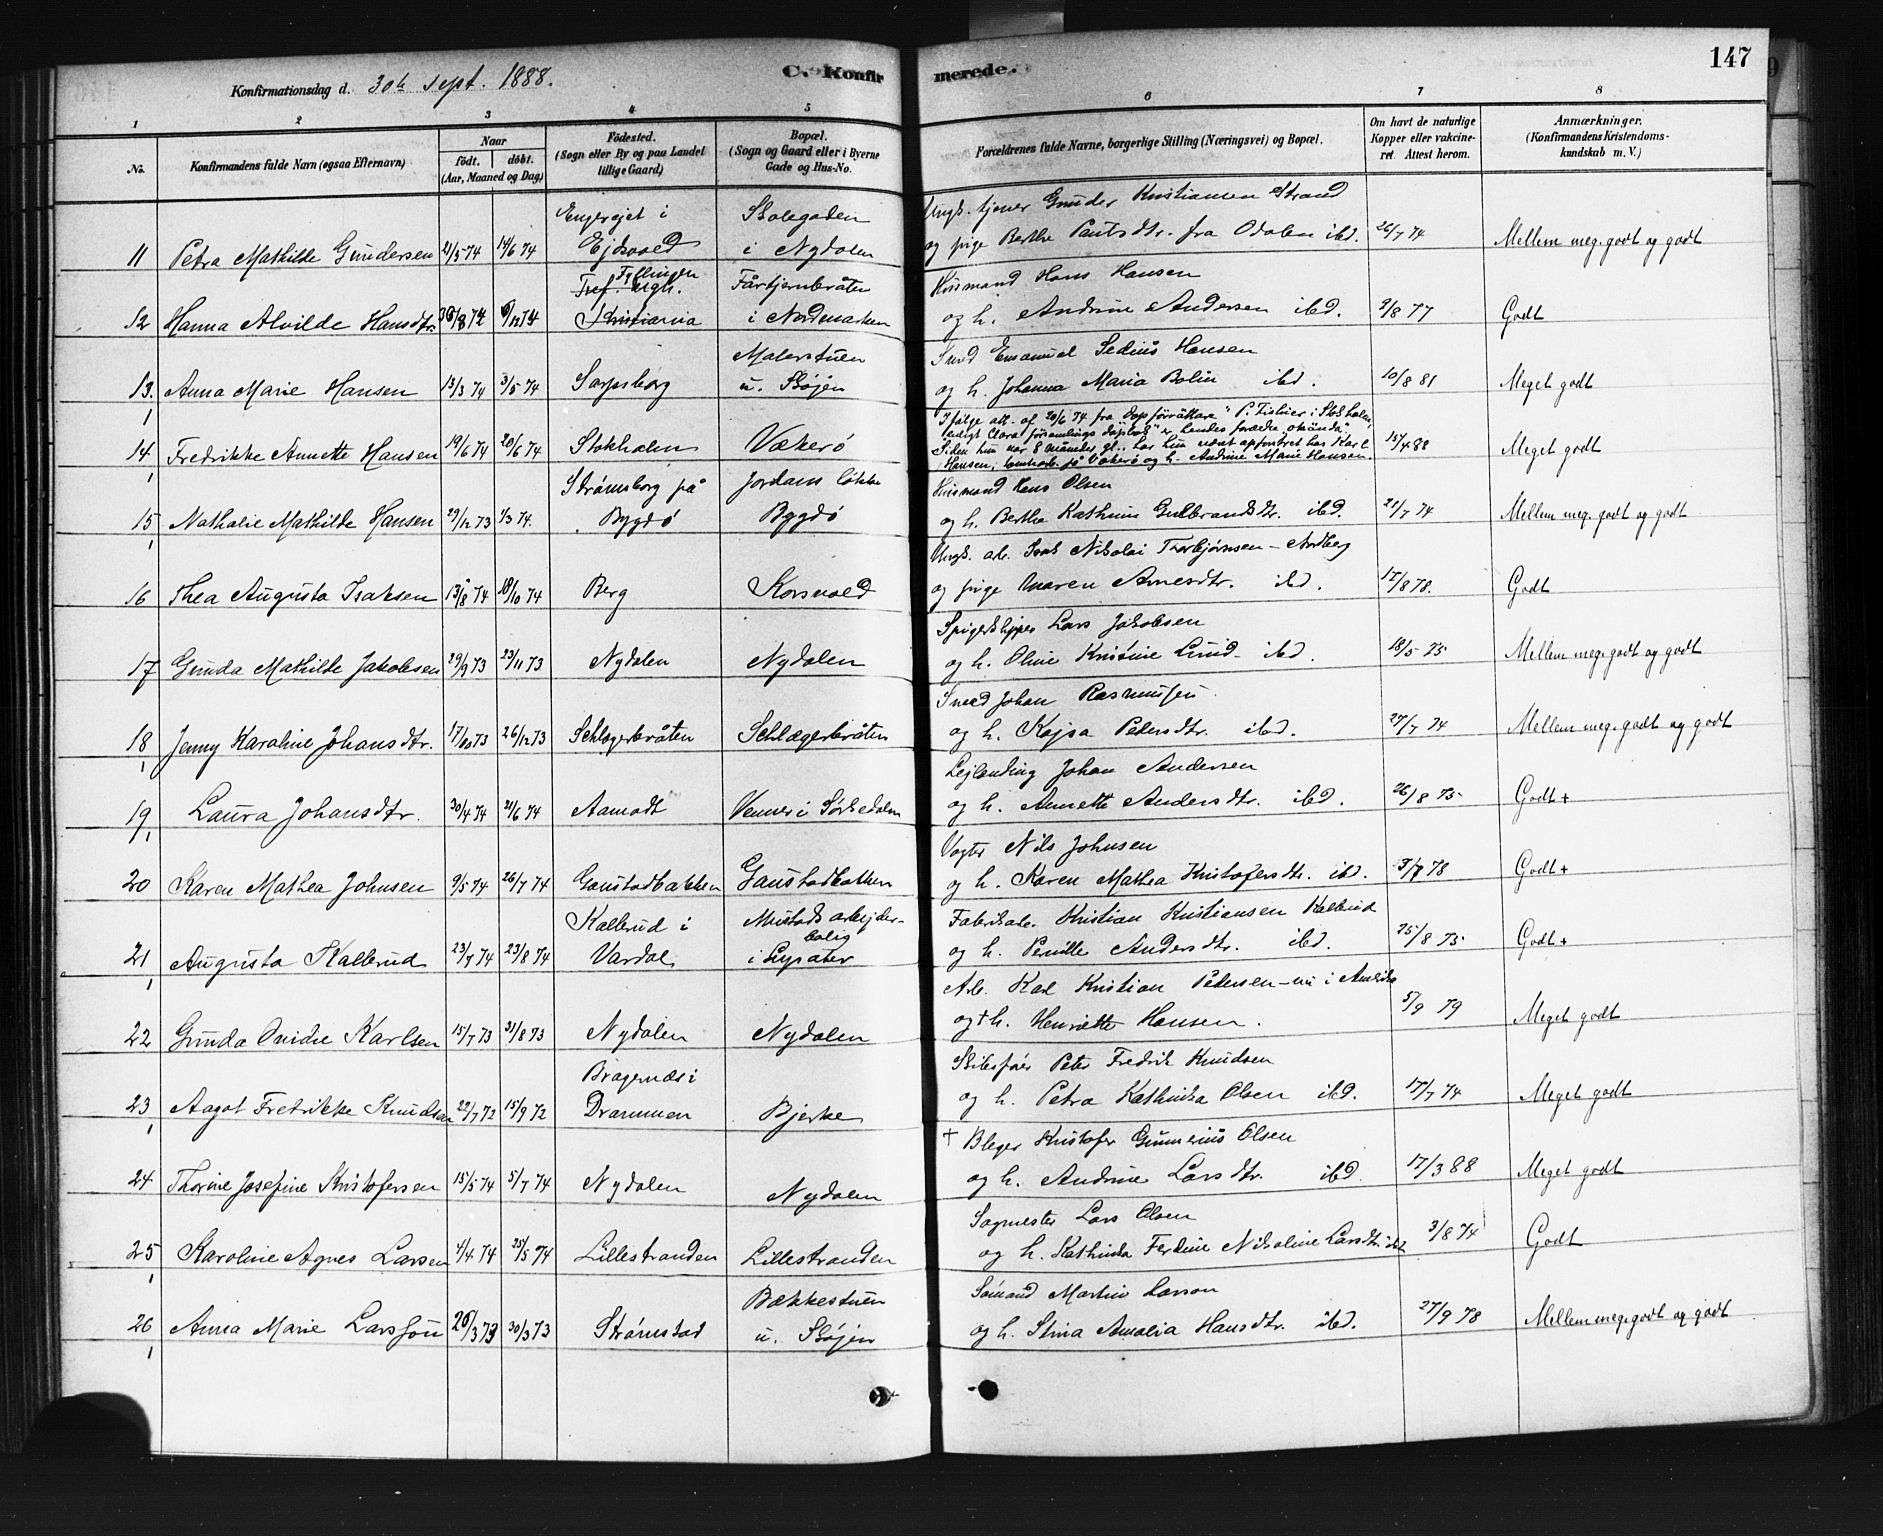 147
Konfirmationsdag d. 30te sept. 1888.
C. Konfirmerede.
1 2 3 4 5 6 7 8
No.
Konfirmandens fulde Navn (ogsaa Efternavn)
Naar
födt. döbt.
(Aar, Maaned og Dag)
Födested.
(Sogn eller By og paa Landet
tillige Gaard)
Bopæl.
(Sogn og Gaard eller i Byerne
Gade og Hus-No.
Forældrenes fulde Navne, borgerlige Stilling (Næringsvei) og Bopæl.
Om havt de naturlige
Kopper eller vakcine-
ret. Attest herom.
Anmærkninger.
(Konfirmandens Kristendoms-
kundskab m. V.)
Engerejet i Skolegaden Ungk. tjener Gunder Kristiansen Strand
11 Petra Mathilde Gundersen 21/5 74 14/6 74 Ejdsvold i Nydalen og pige Berthe Paulsdtr. fra Odalen ibd. 26/7 74 Mellem meg. godt og godt
Tref. Ugh. Fyllingen Fårtjernbråten Husmand Hans Hansen
12 Hanna Alvilde Hansdtr. 30/8 74 6/12 74 Kristiania i Nordmarken og h. Andrine Andersen ibd. 9/8 77 Godt
Malerstuen Smed Emanuel Sedius Hansen
13. Anna Marie Hansen 13/3 74 3/5 74 Sarpsborg u. Skøjen og h. Johanna Maria Bolin ibd. 10/8 81 Meget godt
Ifølge att. af 20/6 74 fra "dopförrättare" P. Fishier i Stokholm,
ladigt Clara församlings dopbok er hendes forældre "okända".
14 Fredrikke Annette Hansen 19/6 74 20/6 74 Stokholm Vækerø Siden hun var 8 måneder gl., har hun været opfostret hos Karl 15/4 88 Meget godt
Hansen, på Vækerø og h. Andrine Marie Hansen.
Strømsborg på Jordans løkke Husmand Hans Olsen
15 Nathalie Mathilde Hansen 29/12 73 1/3 74. Bygdø Bygdø og h. Berthe Kathrine Gulbrandsdtr. ibd. 21/7 74 Mellem meg. godt og godt
Ungk. arb. Isak Nikolai Thorbjørnsen - Nordberg
16 Thea Augusta Isaksen 13/8 74 18/10 74 Berg Korsvold og pige Maren Arnesdtr. ibd. 17/8 78. Godt
Spigerklipper Lars Jakobsen
17 Gunda Mathilde Jakobsen 29/9 73 23/11 73 Nydalen Nydalen og h. Oline Kristine Lund ibd. 18/5 75 Mellem meg. godt og godt
Smed Johan Rasmussen
18 Jenny Karoline Johansdtr. 17/10 73 26/12 73 Schlægerbråten Schlægerbråten og h. Kajsa Pedersdtr. ibd. 27/7 74 Mellem meg. godt og godt
Lejlending Johan Andersen
19 Laura Johansdtr. 30/4 74 21/6 74 Aamodt Venner i Sørkedalen og h. Annette Andersdtr. ibd. 26/8 75 Godt +
Vogter Nils Johnsen
20 Karen Mathea Johnsen 9/5 74 26/7 74 Gaustadbakken Gaustadbakken og h. Karen Mathea Kristofersdtr. ibd. 3/7 78 Godt +
Kallerud i Mustads arbejder- Fabrikarb. Kristian Kristiansen Kallerud
bolig
21 Augusta Kallerud 23/7 74 23/8 74 Vardal i Lysaker og h. Pernille Andersdtr. ibd. 25/8 75 Godt +
Arb. Karl Kristian Petersen - nu i Amerika
22 Gunda Ovidie Karlsen 15/7 73 31/8 73 Nydalen Nydalen og † h. Henriette Hansen. 5/9 79 Meget godt
Bragernæs i Skibsfører Peter Fredrik Knudsen
23 Aagot Fredrikke Knudsen 22/7 72 15/9 72 Drammen Bjerke og h. Petra Kathinka Olsen ibd. 17/7 74 Meget godt
† Bleger Kristofer Gunnerius Olsen
24 Thorine Josefine Kristofersen 15/5 74 5/7 74 Nydalen Nydalen og h. Andrine Larsdtr. ibd. 17/3 88 Meget godt
Sagmester Lars Olsen
25 Karoline Agnes Larsen 4/4 74 25/5 74 Lillestranden Lillestranden og h. Kathinka Ferdine Nikoline Larsdtr. ibd. 3/8 74 Godt
Bækkestuen Sømand Martin Larson
26 Anna Marie Larsson 26/3 73 30/3 73 Strømstad u. Skøjen og h. Stina Amalia Hansdtr. ibd. 27/9 78 Mellem meg. godt og godt